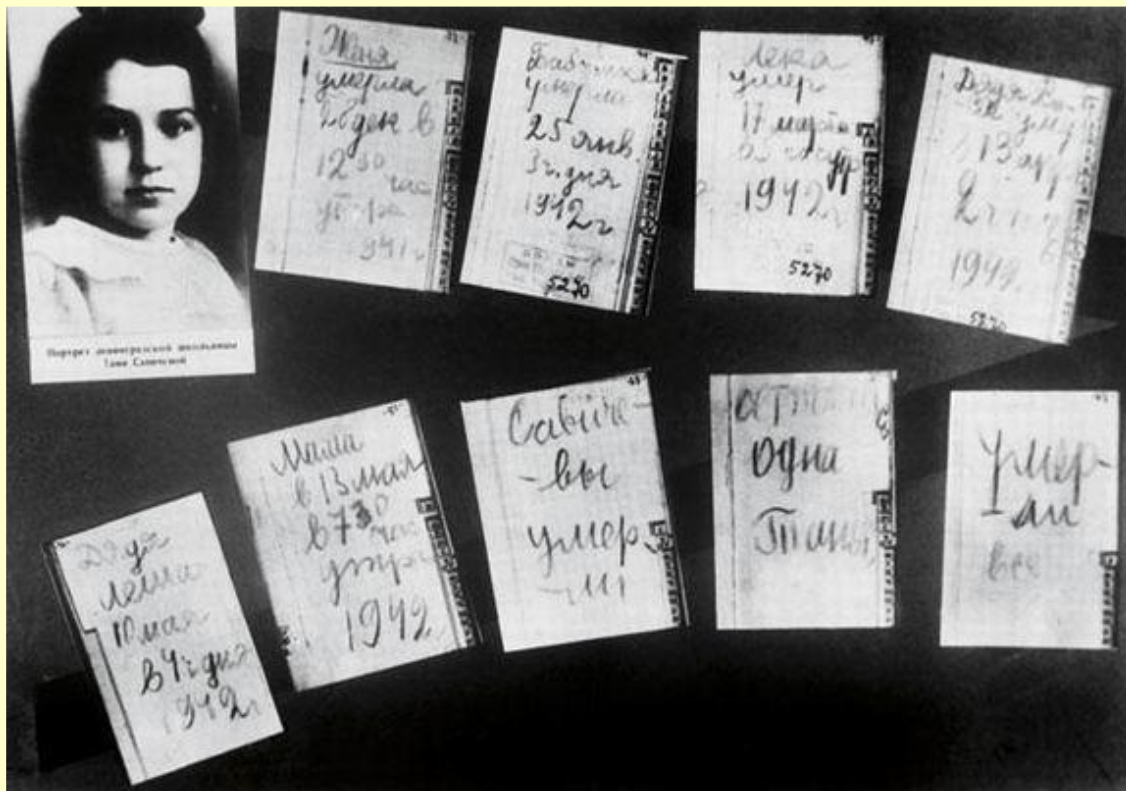 Портрет ленинградской школьницы
Тани Савичевой
Женя
умерла
28 дек в
12 30
час
утра
1941 г
Бабушка
умерла
25 янв.
3 ч. дня
1942 г
5270
Лека
умер
17 марта
в 5 час утр
1942 г
5270
Дядя Ва-
ся умер
в 13 апр
2 ч
1942
5270
Дядя
Леша
10 мая
в 4 ч дня
1942 г
Мама
в 13 мая
в 7 30
час
утра
1942
Савиче-
-вы
умер
-ли
одна
Таня
умер-
-ли
все